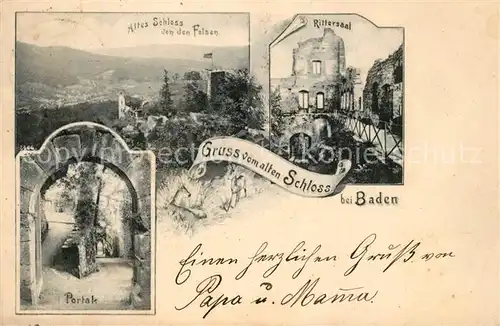 Altes Schloss
von den Felsen.
Rittersaal
Gruss vom alten Schloss.
bei Baden
Portale
Einen herzlichen Gruß von
Papa u. Mama.